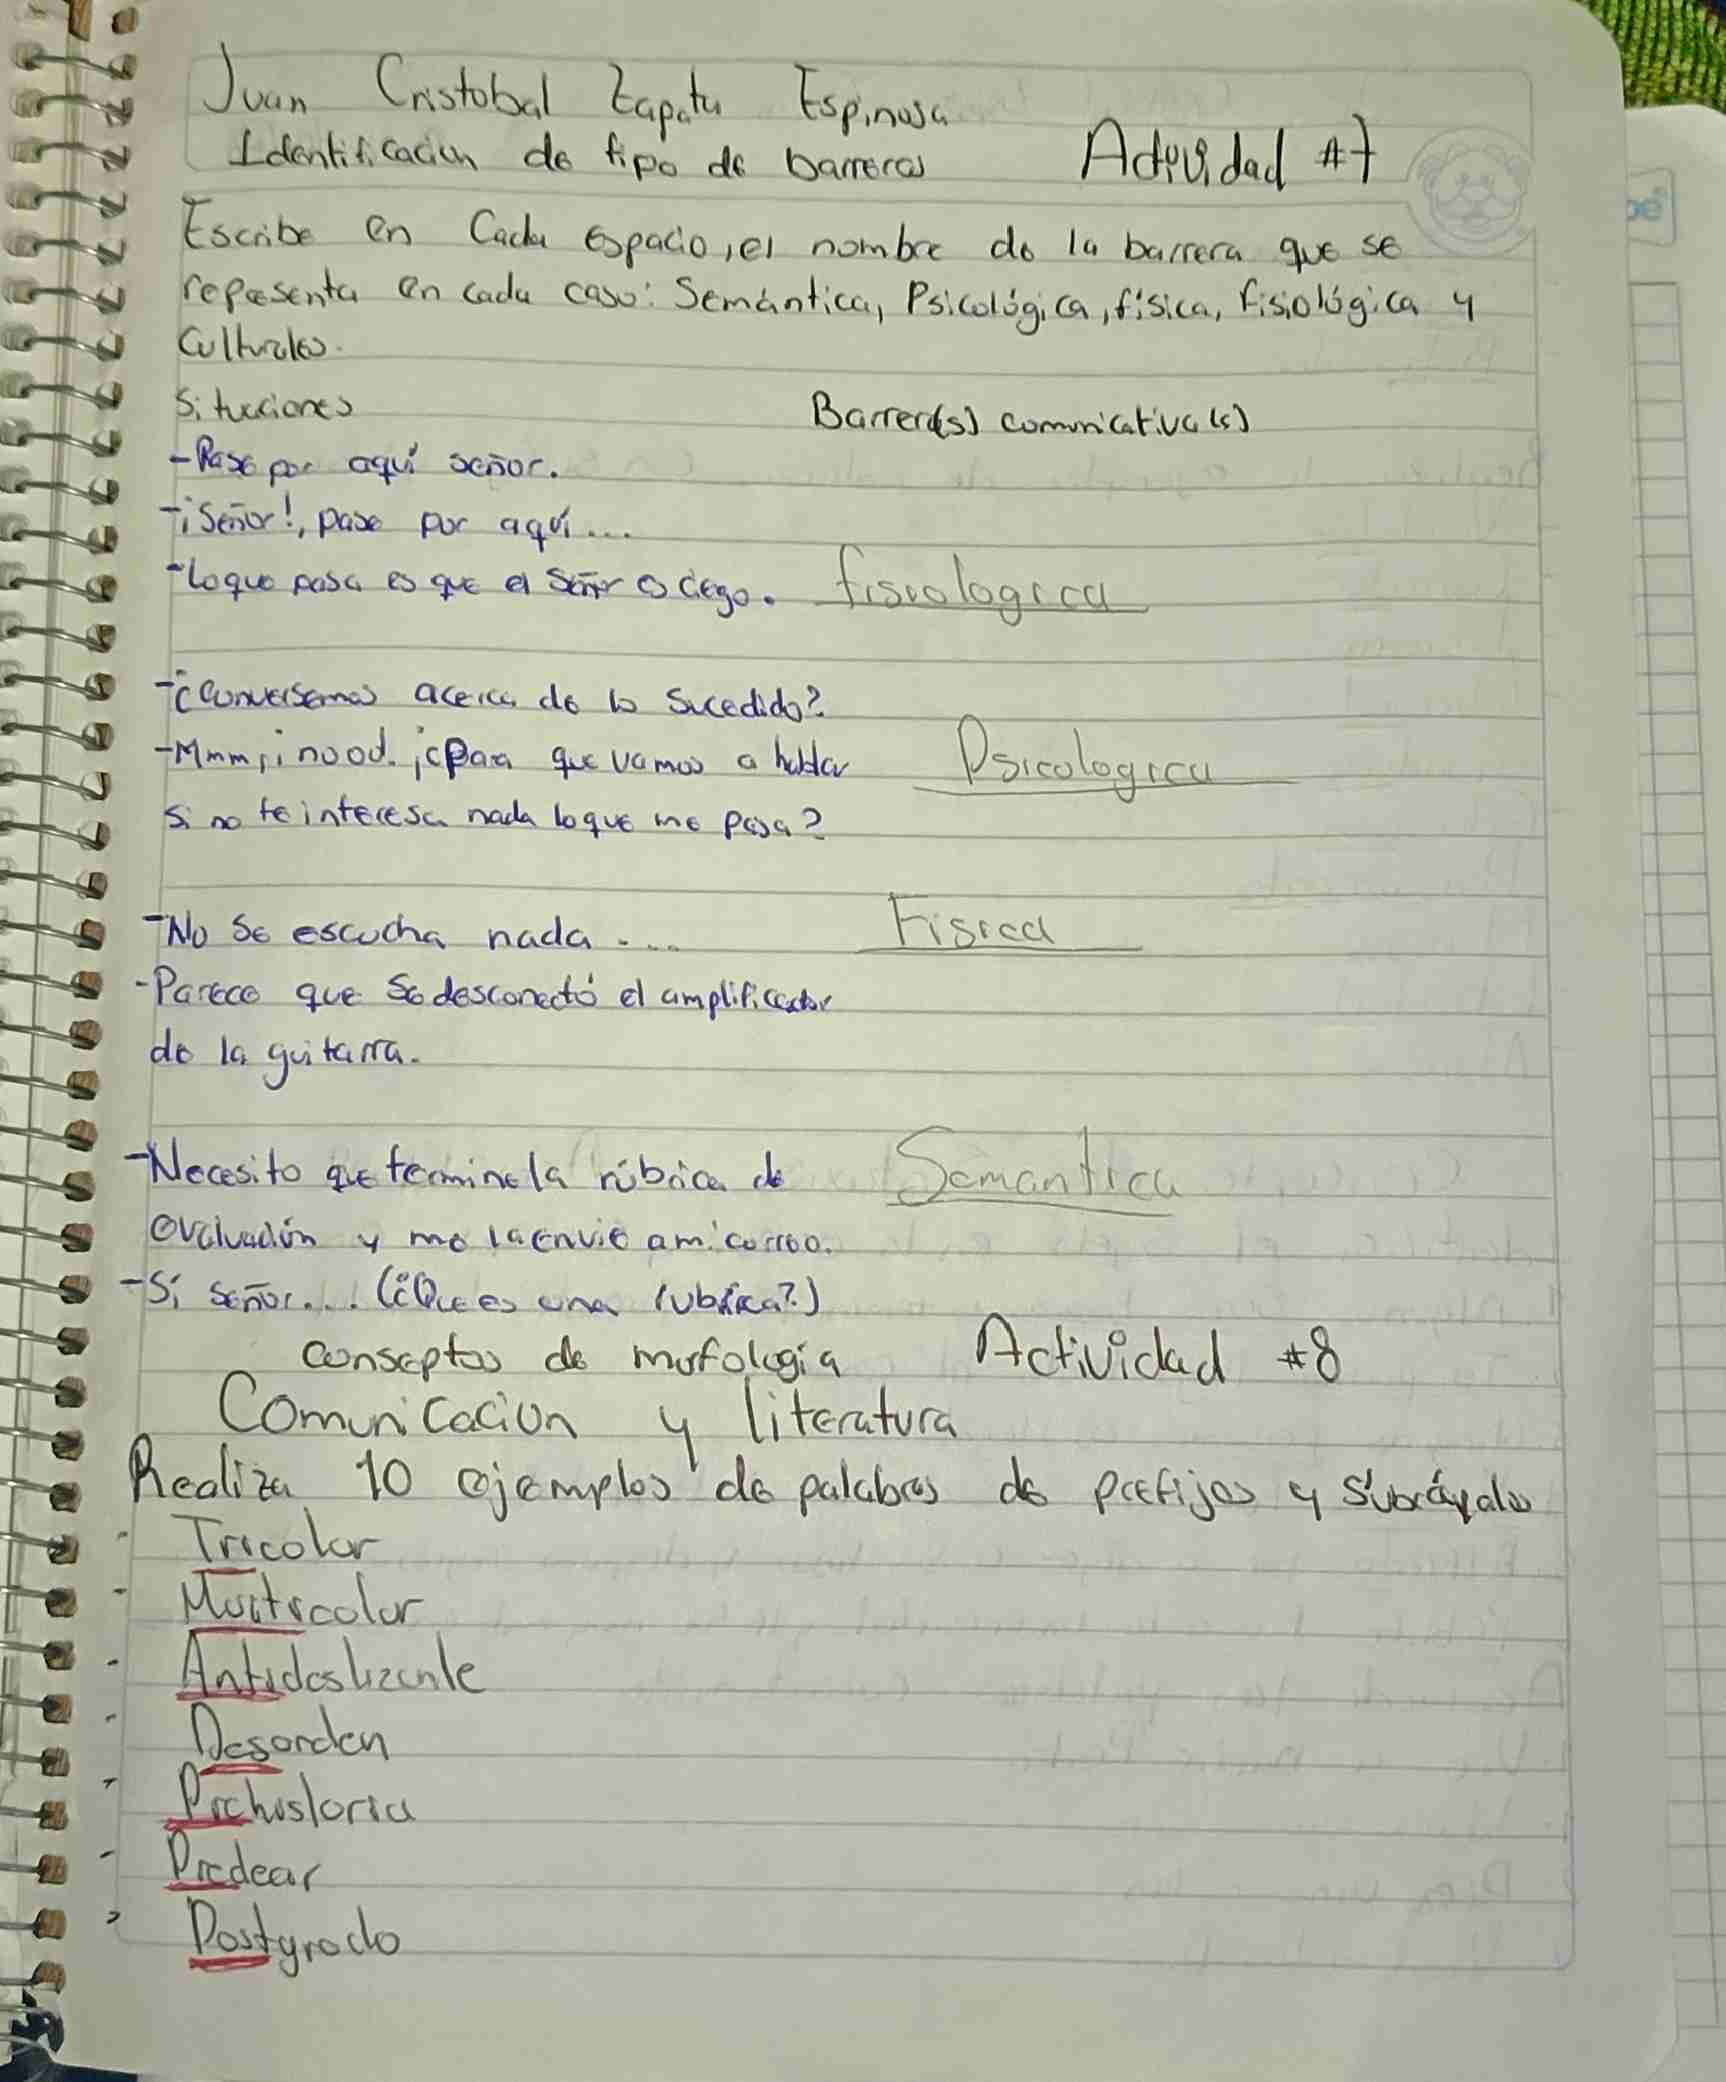 Juan Cristobal Zapata Espinosa
Identificacion de tipo de barreras Actividad #7
Escribe en Cada espacio, el nombre de la barrera que se
representa en cada caso: Semántica, Psicológica, física, fisiológica y
Culturales.
Situaciones Barrera(s) comunicativa(s)
-Pase por aquí señor.
-¡Señor!, pase por aquí...
-Lo que pasa es que el señor es ciego. fisiologica
-¿Conversamos acerca de lo sucedido?
-Mmm, ¿Para que vamos a hablar Psicologica
si no te interesa nada lo que me pasa?
-No se escucha nada .... Fisica
-Parece que se desconectó el amplificador
de la guitarra.
-Necesito que termine la rúbrica de Semantica
evaluación y me la envie a mi correo.
-Si señor... (¿Que es una rubrica?)
conseptos de morfología Actividad #8
Comunicacion y literatura
Realiza 10 ejemplos de palabras de prefijos y subráyalos
- Tricolor
- Multicolor
- Antideslizante
- Desorden
- Prehistoria
- Predecir
- Postgrado